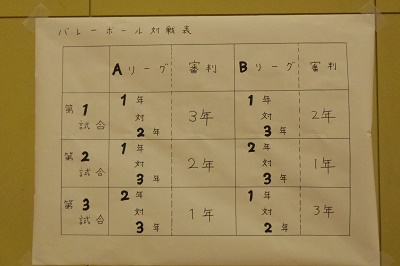 バレーボール対戦表
Aリーグ 審判 Bリーグ 審判
第1試合 1年対2年 3年 1年対3年 2年
第2試合 1年対3年 2年 2年対3年 1年
第3試合 2年対3年 1年 1年対2年 3年